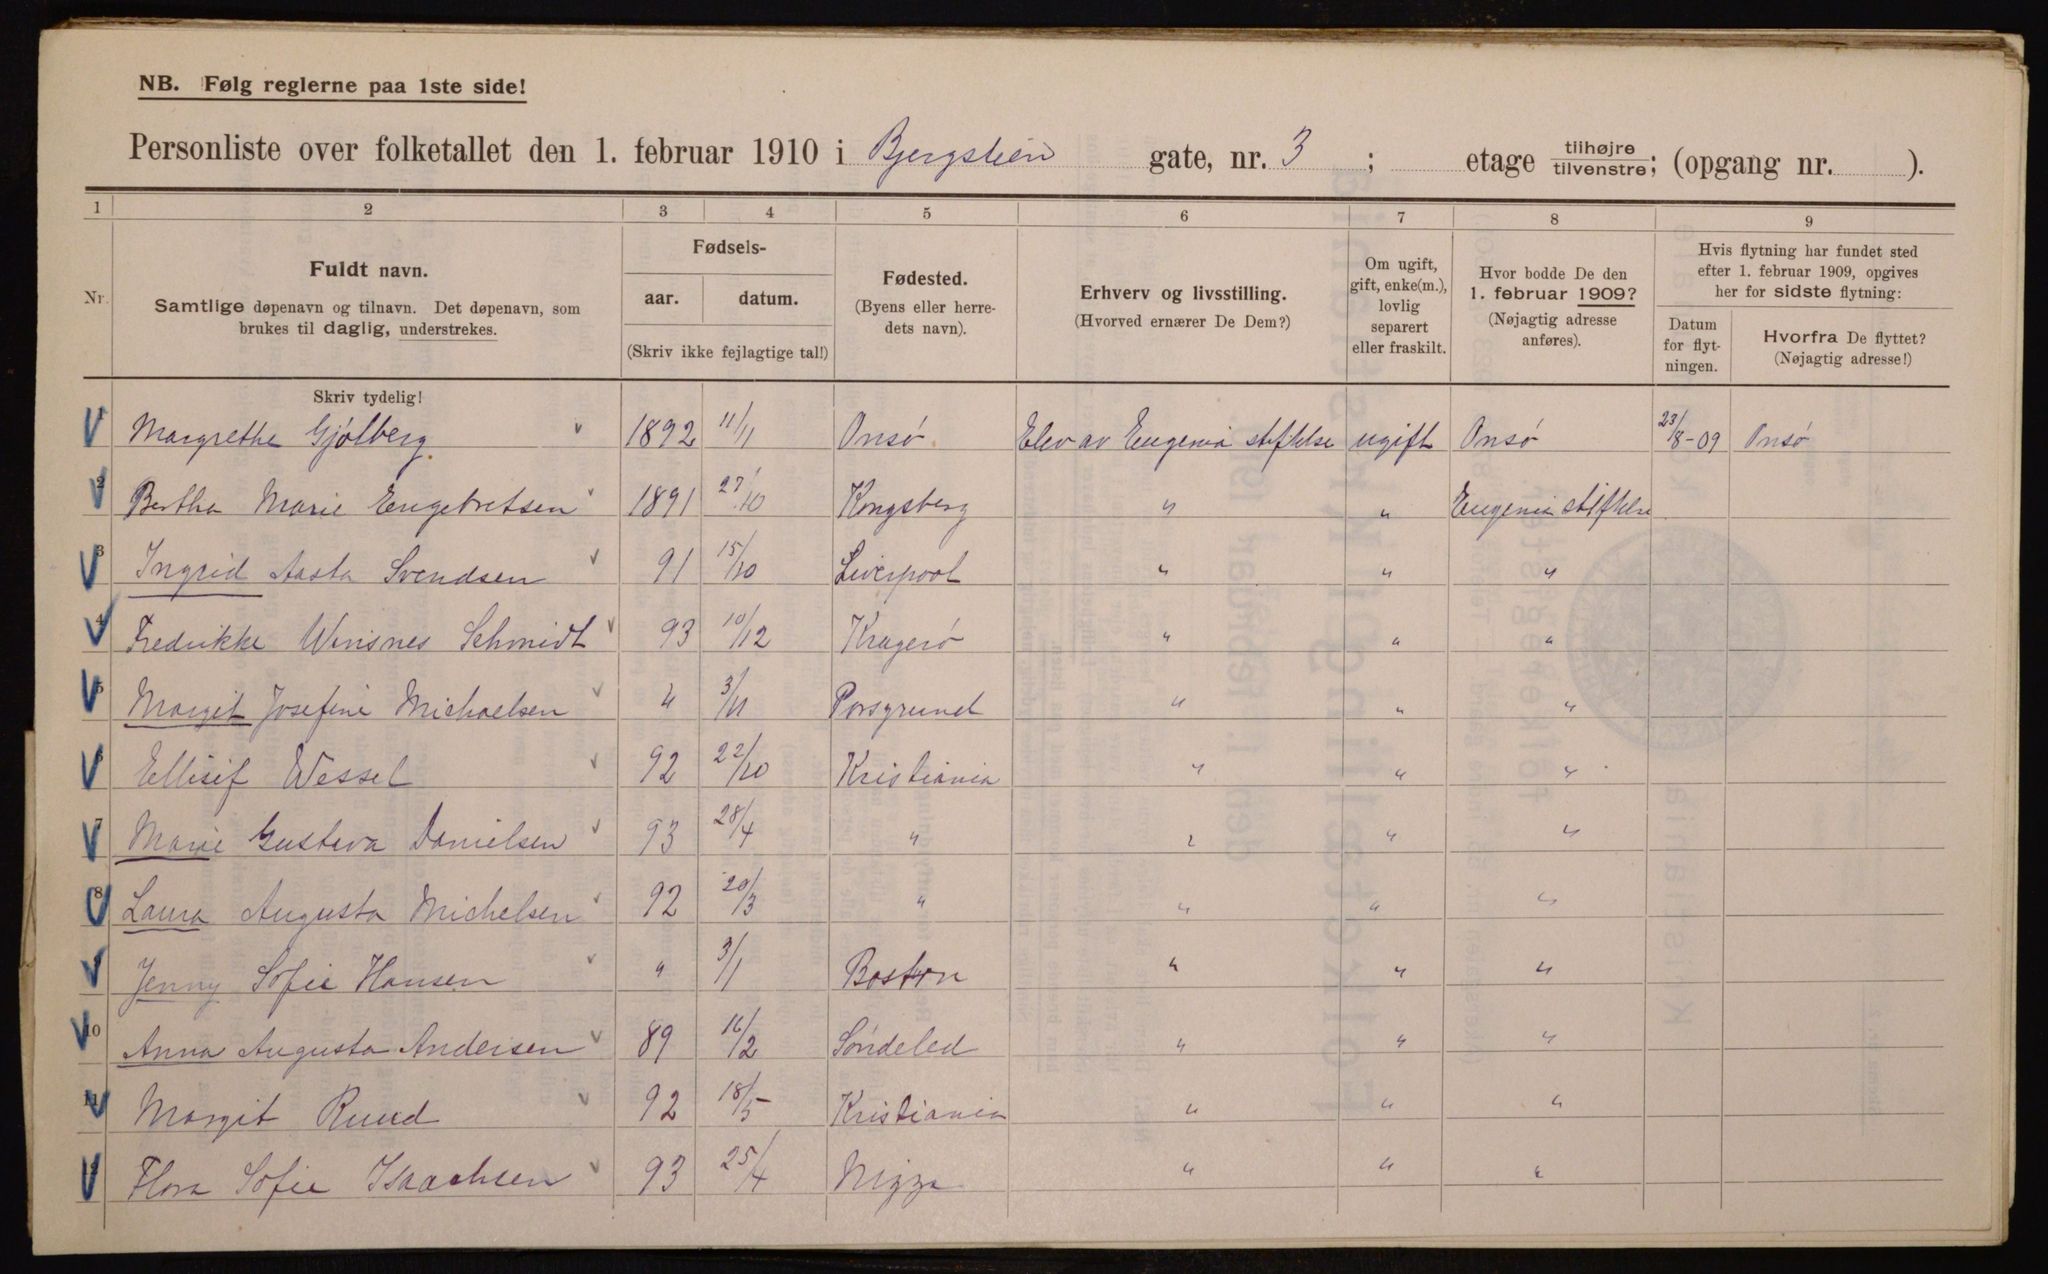 NB. Følg reglerne paa 1ste side!
Personliste over folketallet den 1. februar 1910 i Bjergstien gate, nr. 3 ; etage tilhøjre tilvenstre; (opgang nr. ).
1 2 3 4 5 6 7 8 9
Nr. Fuldt navn. Samtlige døpenavn og tilnavn. Det døpenavn, som brukes til daglig, understrekes.
Fødsels- aar. datum. (Skriv ikke fejlagtige tal!)
Fødested. (Byens eller herredets navn).
Erhverv og livsstilling. (Hvorved ernærer De Dem?)
Om ugift, gift, enke(m.), lovlig separert eller fraskilt.
Hvor bodde De den 1. februar 1909? (Nøjagtig adresse anføres).
Hvis flytning har fundet sted efter 1. februar 1909, opgives her for sidste flytning:
Datum for flytningen. Hvorfra De flyttet? (Nøjagtig adresse!)
Skriv tydelig!
1 Margrethe Gjølberg 1892 11/11 Onsø Elev av Eugenia stiftelse ugift Onsø 23/8-09 Onsø
2 Bertha Marie Engebretsen 1891 27/10 Kongsberg " " Eugenia stiftelse
3 Ingrid Aasta Svendsen 91 15/10 Liverpool " " "
4 Fredrikke Winsnes Schmidt 93 10/12 Kragerø " " "
5 Margit Josefine Michaelsen " 3/11 Porsgrund " " "
6 Ellisif Wessel 92 22/10 Kristiania " " "
7 Marie Gustava Danielsen 93 28/4 " " " "
8 Laura Augusta Michelsen 92 20/3 " " " "
Jenny Sofie Hansen " 3/1 Boston " " "
10 Anna Augusta Andersen 89 16/2 Søndeled " " "
11 Margit Ruud 92 18/5 Kristiania " " "
Flora Sofie Isaachsen 93 25/4 Nizza " " "